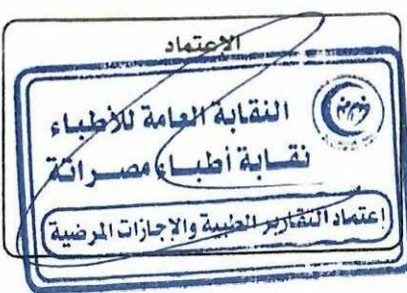 الإعتماد
النقابة العامة للأطباء
نقابة أطباء مصراتة
إعتماد التقارير الطبية والإجازات المرضية